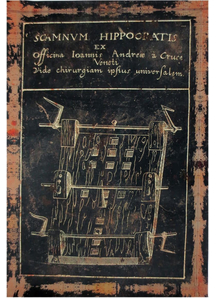 SCAMNVM HIPPOCRATIS
EX
Officina Ioannis Andreæ à Cruce
Veneti
Vide chirurgiam ipsius universalem